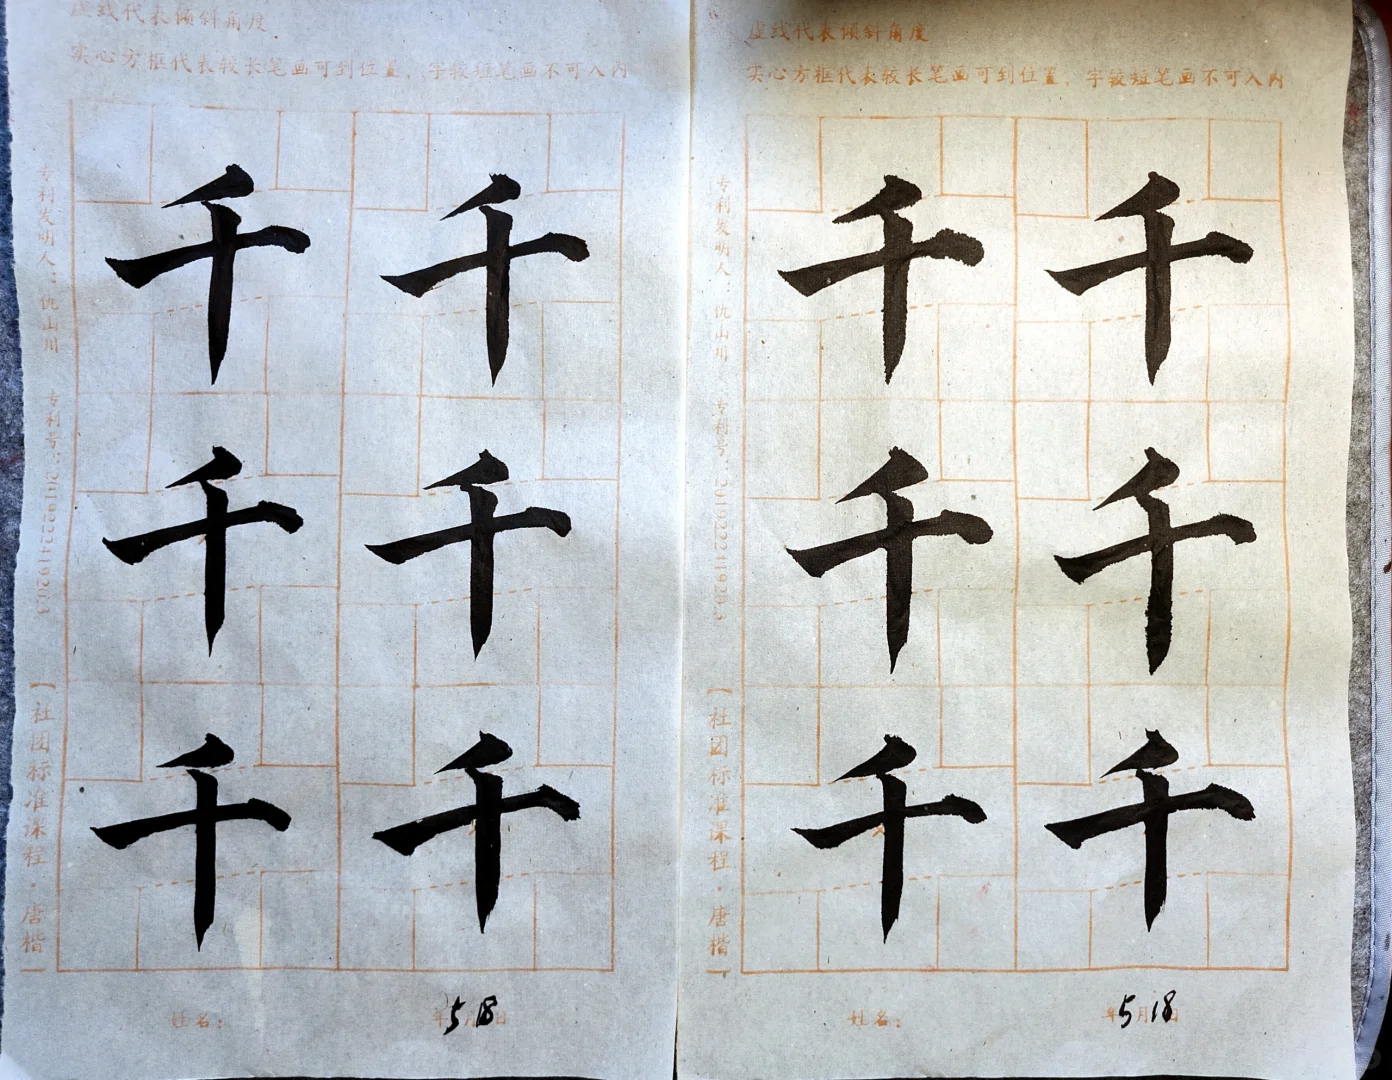 虚线代表倾斜角度
实心方框代表较长笔画可到位置，字较短笔画不可入内
专利发明人：仇山川 专利号：2019222411920.3
【社团标准课程·唐楷】
千 千
千 千
千 千
姓名： 年5月18日
虚线代表倾斜角度
实心方框代表较长笔画可到位置，字较短笔画不可入内
专利发明人：仇山川 专利号：2019222411920.3
【社团标准课程·唐楷】
千 千
千 千
千 千
姓名： 年5月18日